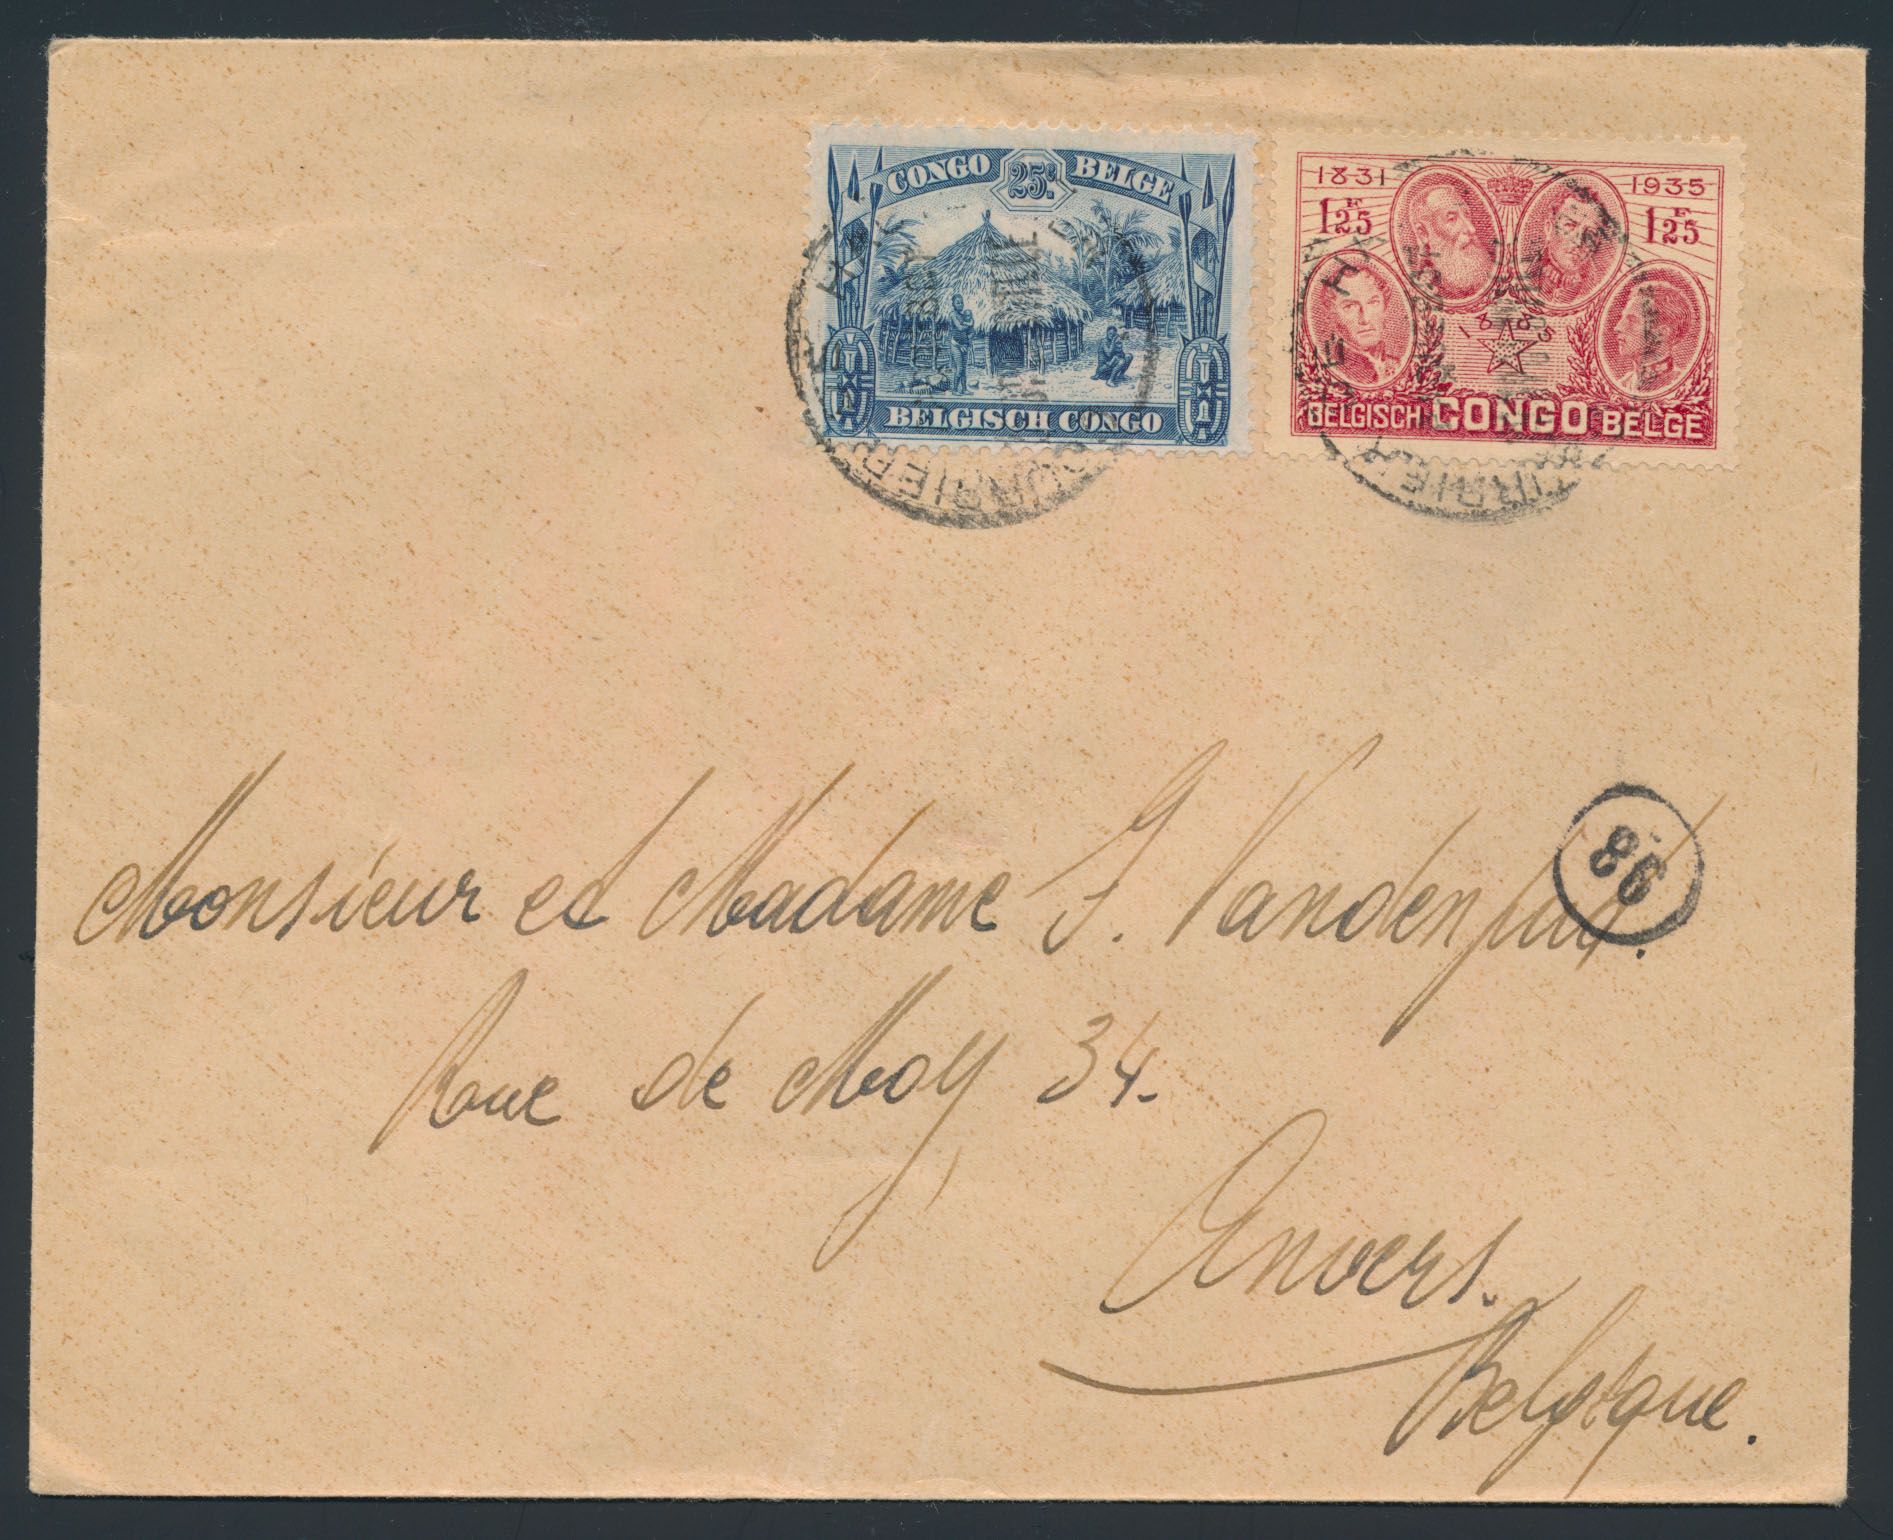 CONGO 25c. BELGE
BELGISCH CONGO
1831 1935
1F25 1F25
1885
BELGISCH CONGO BELGE
98
Monsieur et Madame
Rue de Moy 34.
Anvers.
Belgique.